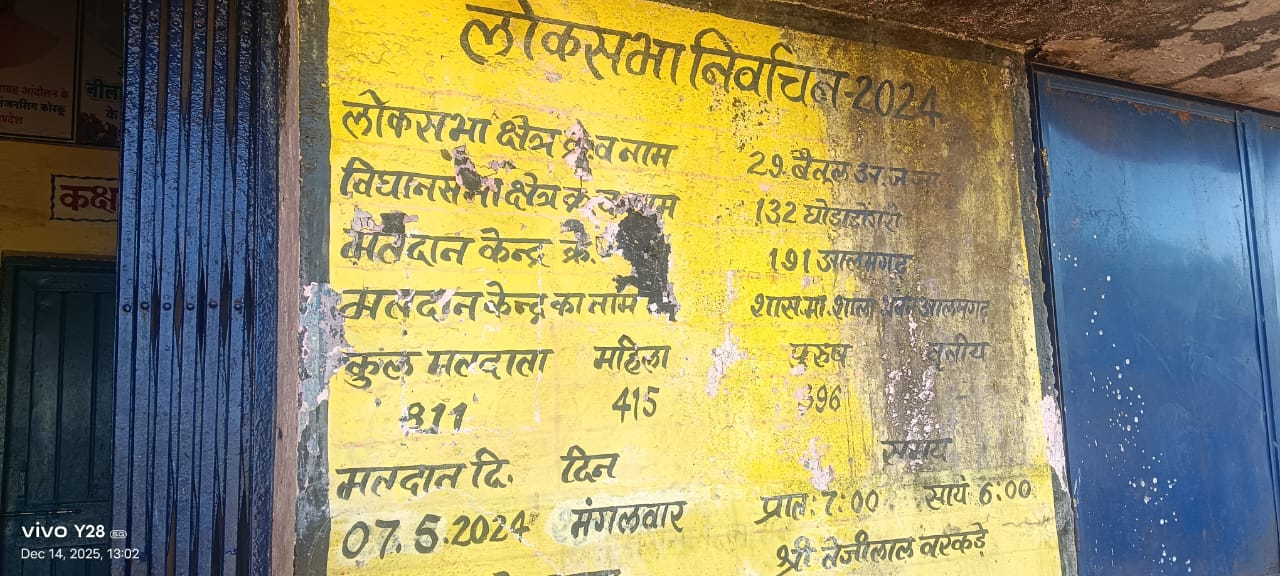 लोकसभा निर्वाचन-2024
लोकसभा क्षेत्र क्र व नाम 29 बैतूल अ.ज.जा
विधानसभा क्षेत्र क्र व नाम 132 घोड़ाडोंगरी
मतदान केन्द्र क्रं. 191 आलमगढ़
मतदान केन्द्र का नाम शास.मा.शाला भवन आलमगढ़
कुल मतदाता महिला पुरुष तृतीय
811 415 396 -
मतदान दि. दिन समय
07.5.2024 मंगलवार प्रात: 7:00 सायं 6:00
श्री तेजीलाल वरकड़े
आंदोलन के
कोरकू
नीला
के
कक्ष
vivo Y28 5G
Dec 14, 2025, 13:02